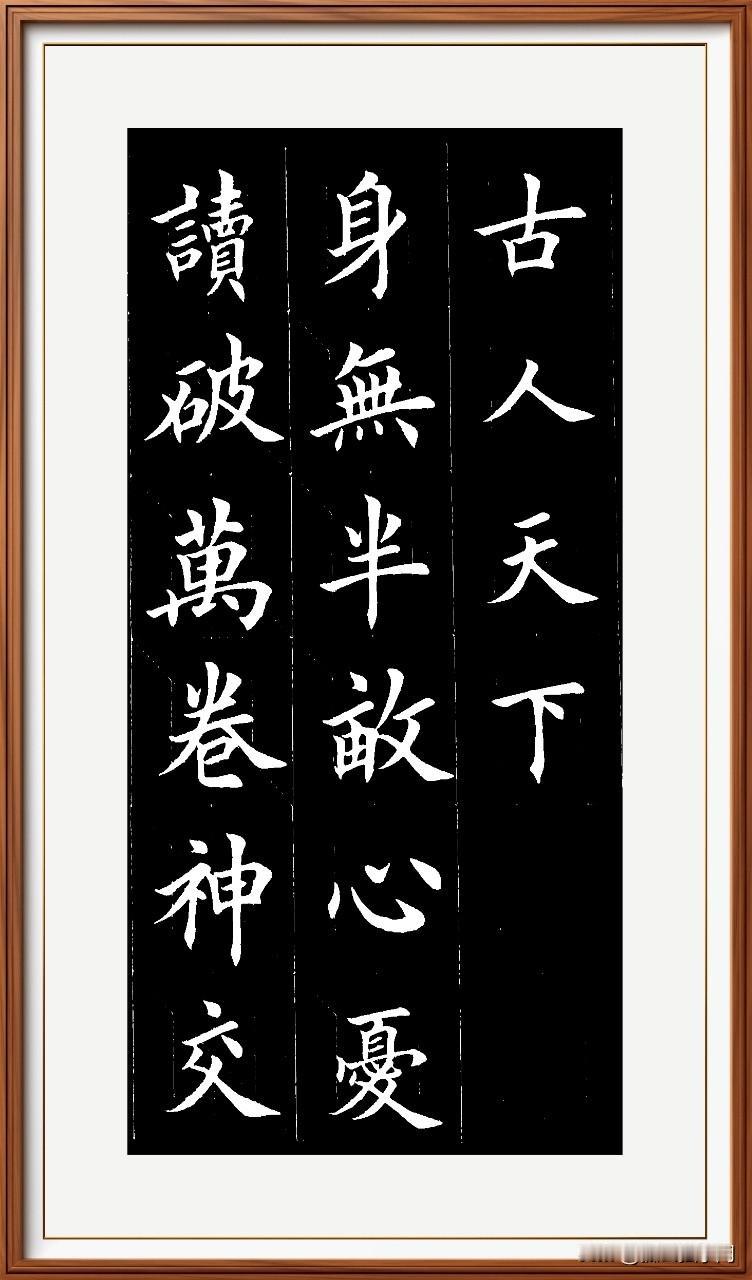 古人天下
身無半畝心憂
讀破萬卷神交